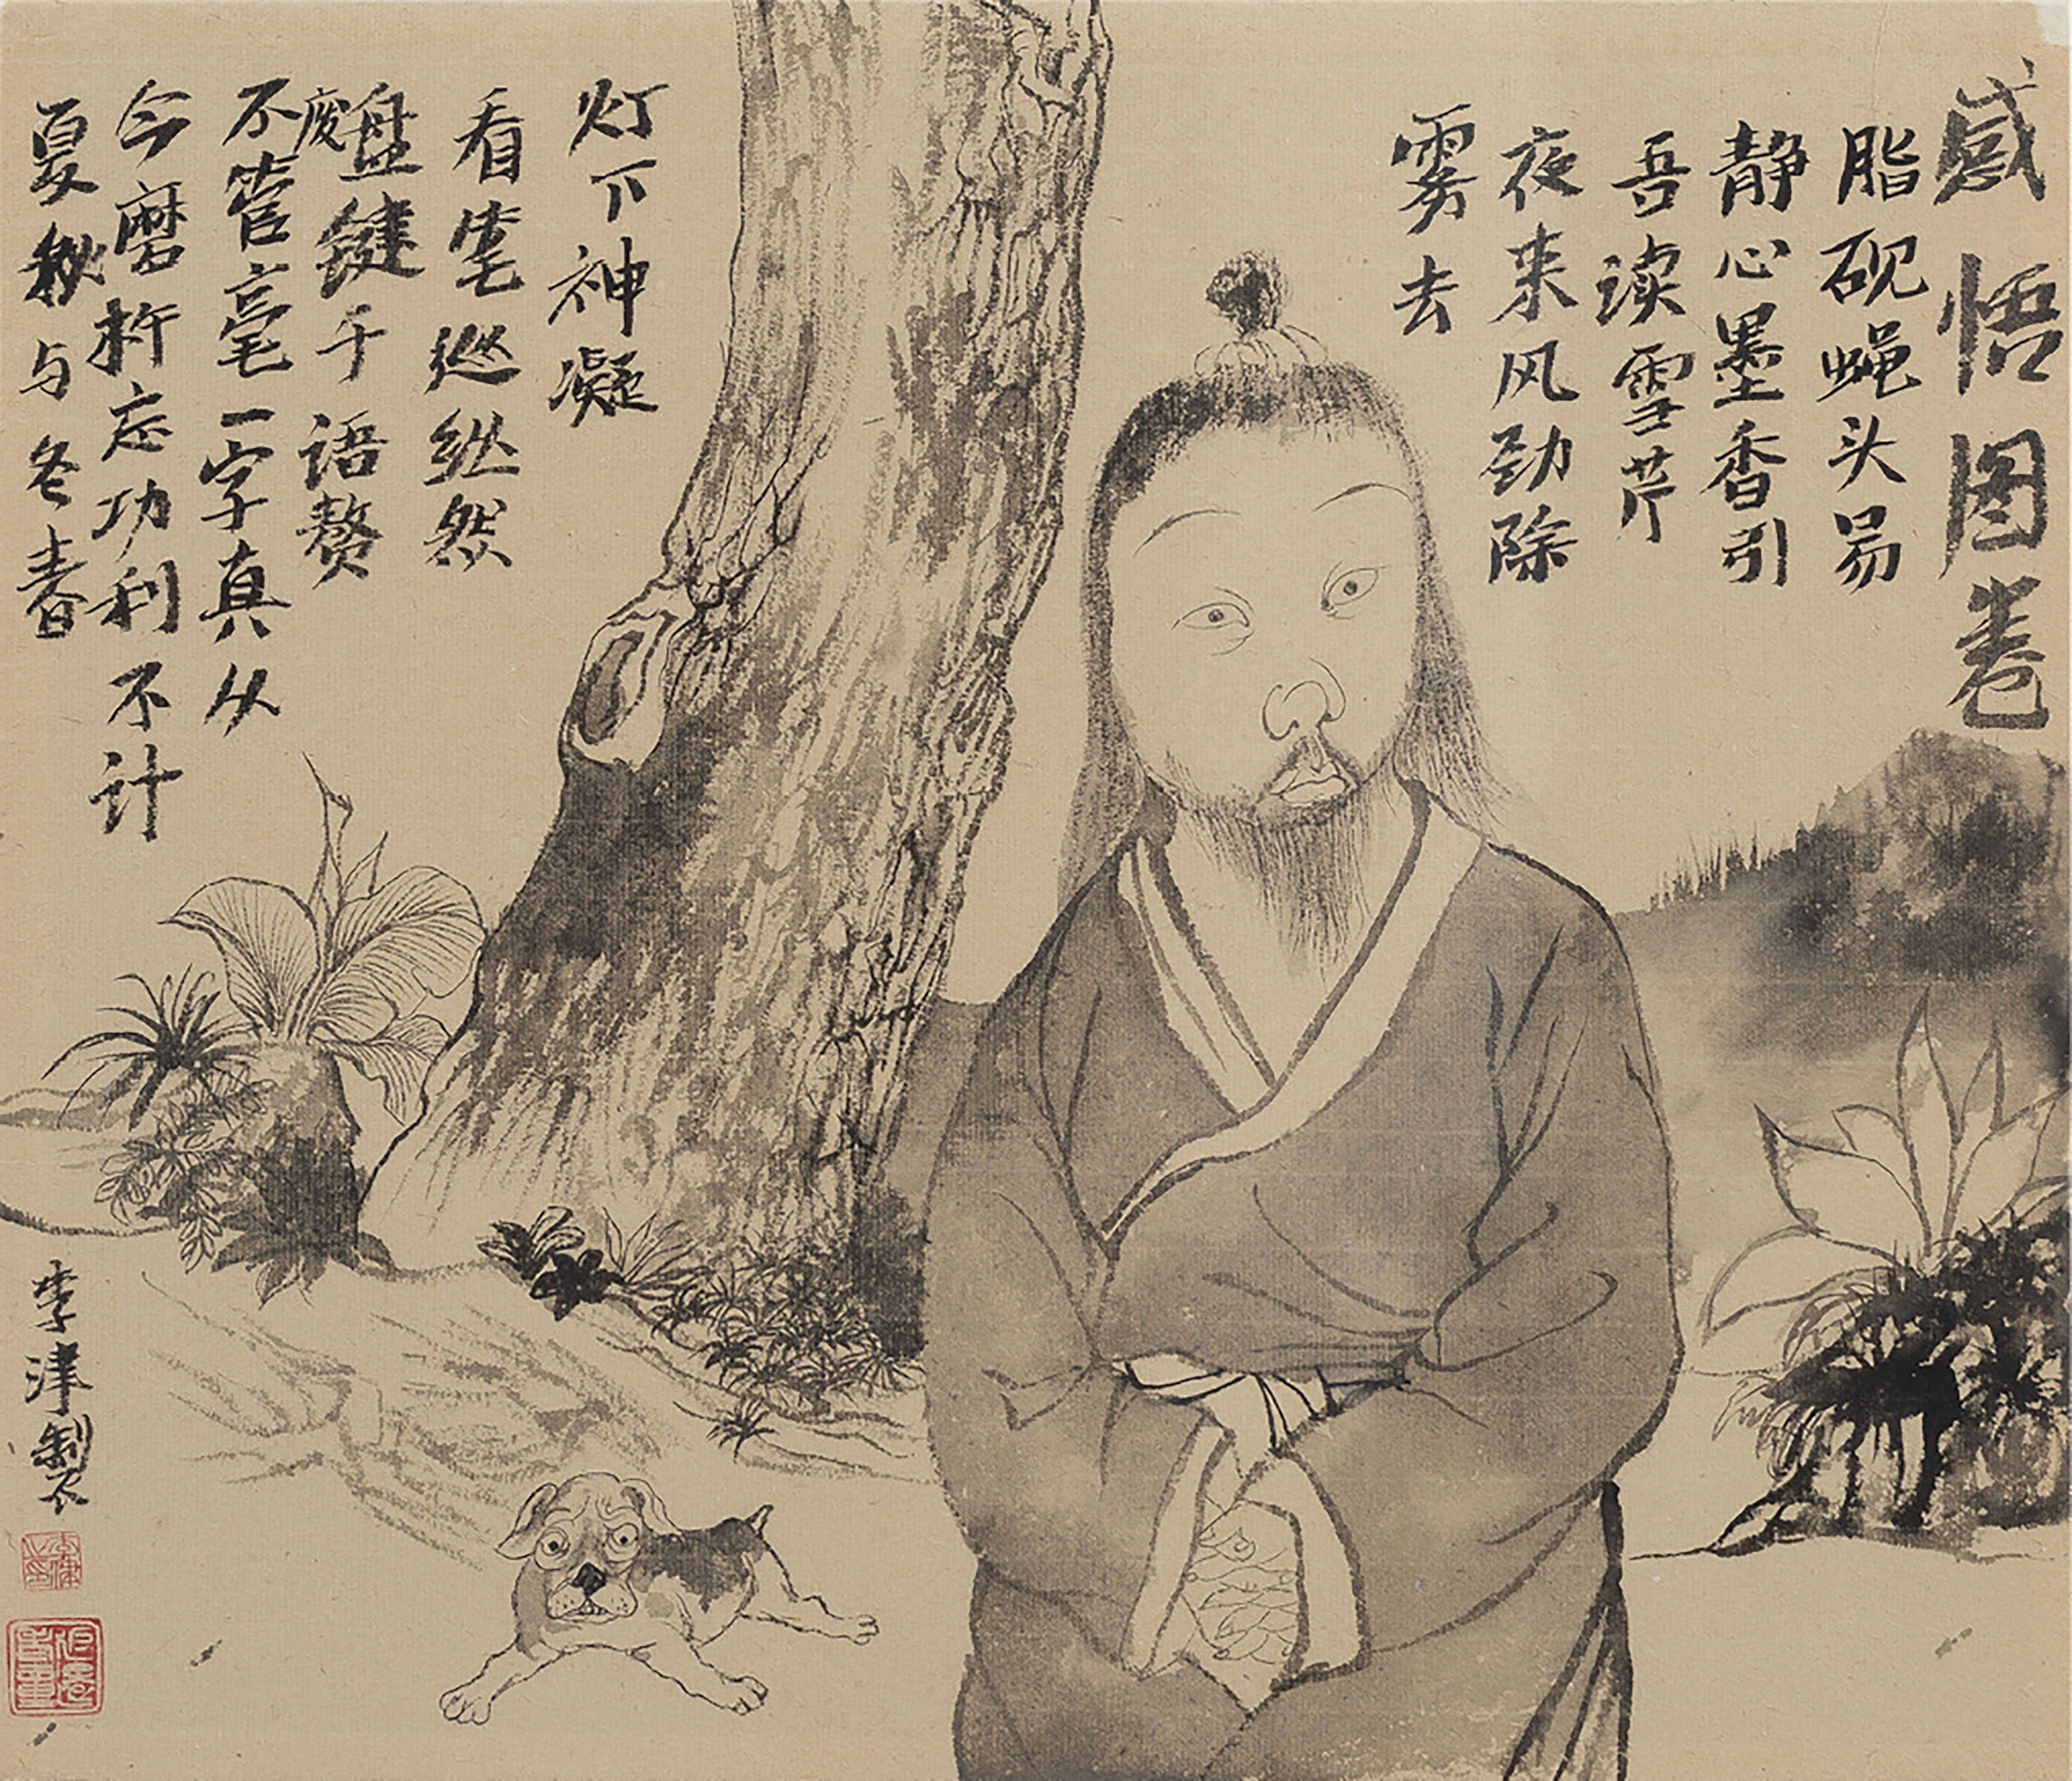 感悟图卷
脂砚蝇头易
静心墨香引
吾读雪芹
夜来风劲除
雾去
灯下神凝
看笔巡纵然
盘键千语赘
不废管毫一字真从
今磨杵忘功利不计
夏秋与冬春
李津製